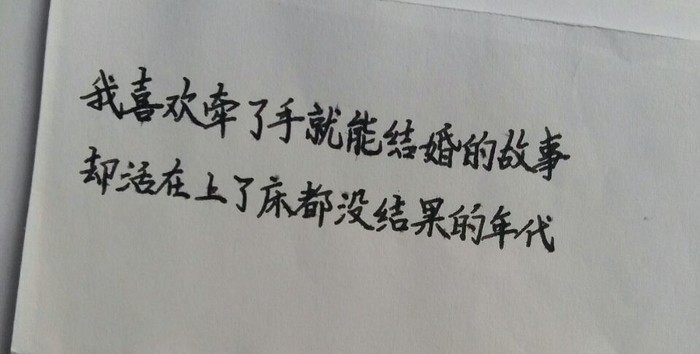 我喜欢牵了手就能结婚的故事
却活在上了床都没结果的年代